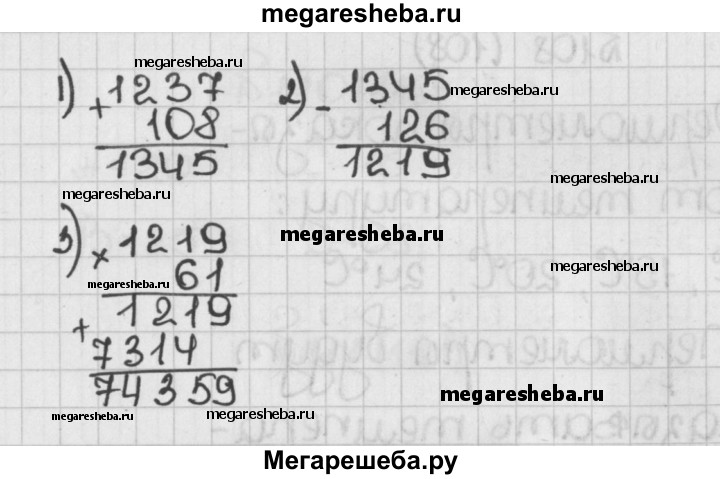 megaresheba.ru
megaresheba.ru
1) + 1237
108
1345
2) - 1345
126
1219
megaresheba.ru
megaresheba.ru
megaresheba.ru
3) × 1219
61
1219
+
7314
74359
megaresheba.ru
megaresheba.ru
megaresheba.ru
megaresheba.ru
megaresheba.ru
megaresheba.ru
Мегарешеба.ру